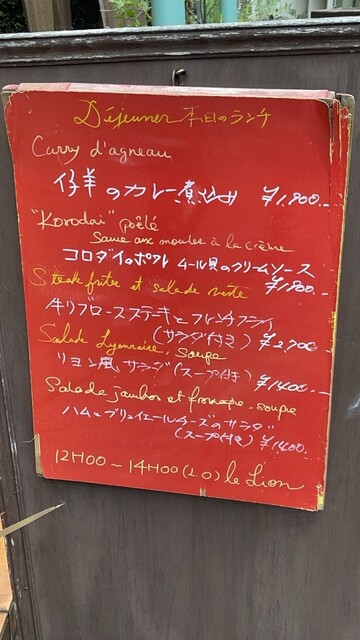 Déjeuner 本日のランチ
Curry d'agneau
仔羊のカレー煮込み ¥1,900.-
"Korodai" poêlé
Sauce aux moules à la crème
コロダイのポワレ ムール貝のクリームソース
¥1,900.-
Steak frites et salade verte
牛リブロースステーキとフレンチフライ
(サラダ付き) ¥2,700.-
Salade Lyonnaise, soupe
リヨン風サラダ(スープ付き) ¥1400.-
Salade jambon et fromage, soupe
ハムとグリュイエールチーズのサラダ
(スープ付き) ¥1,400.
12H00 - 14H00 (L.O) le Lion